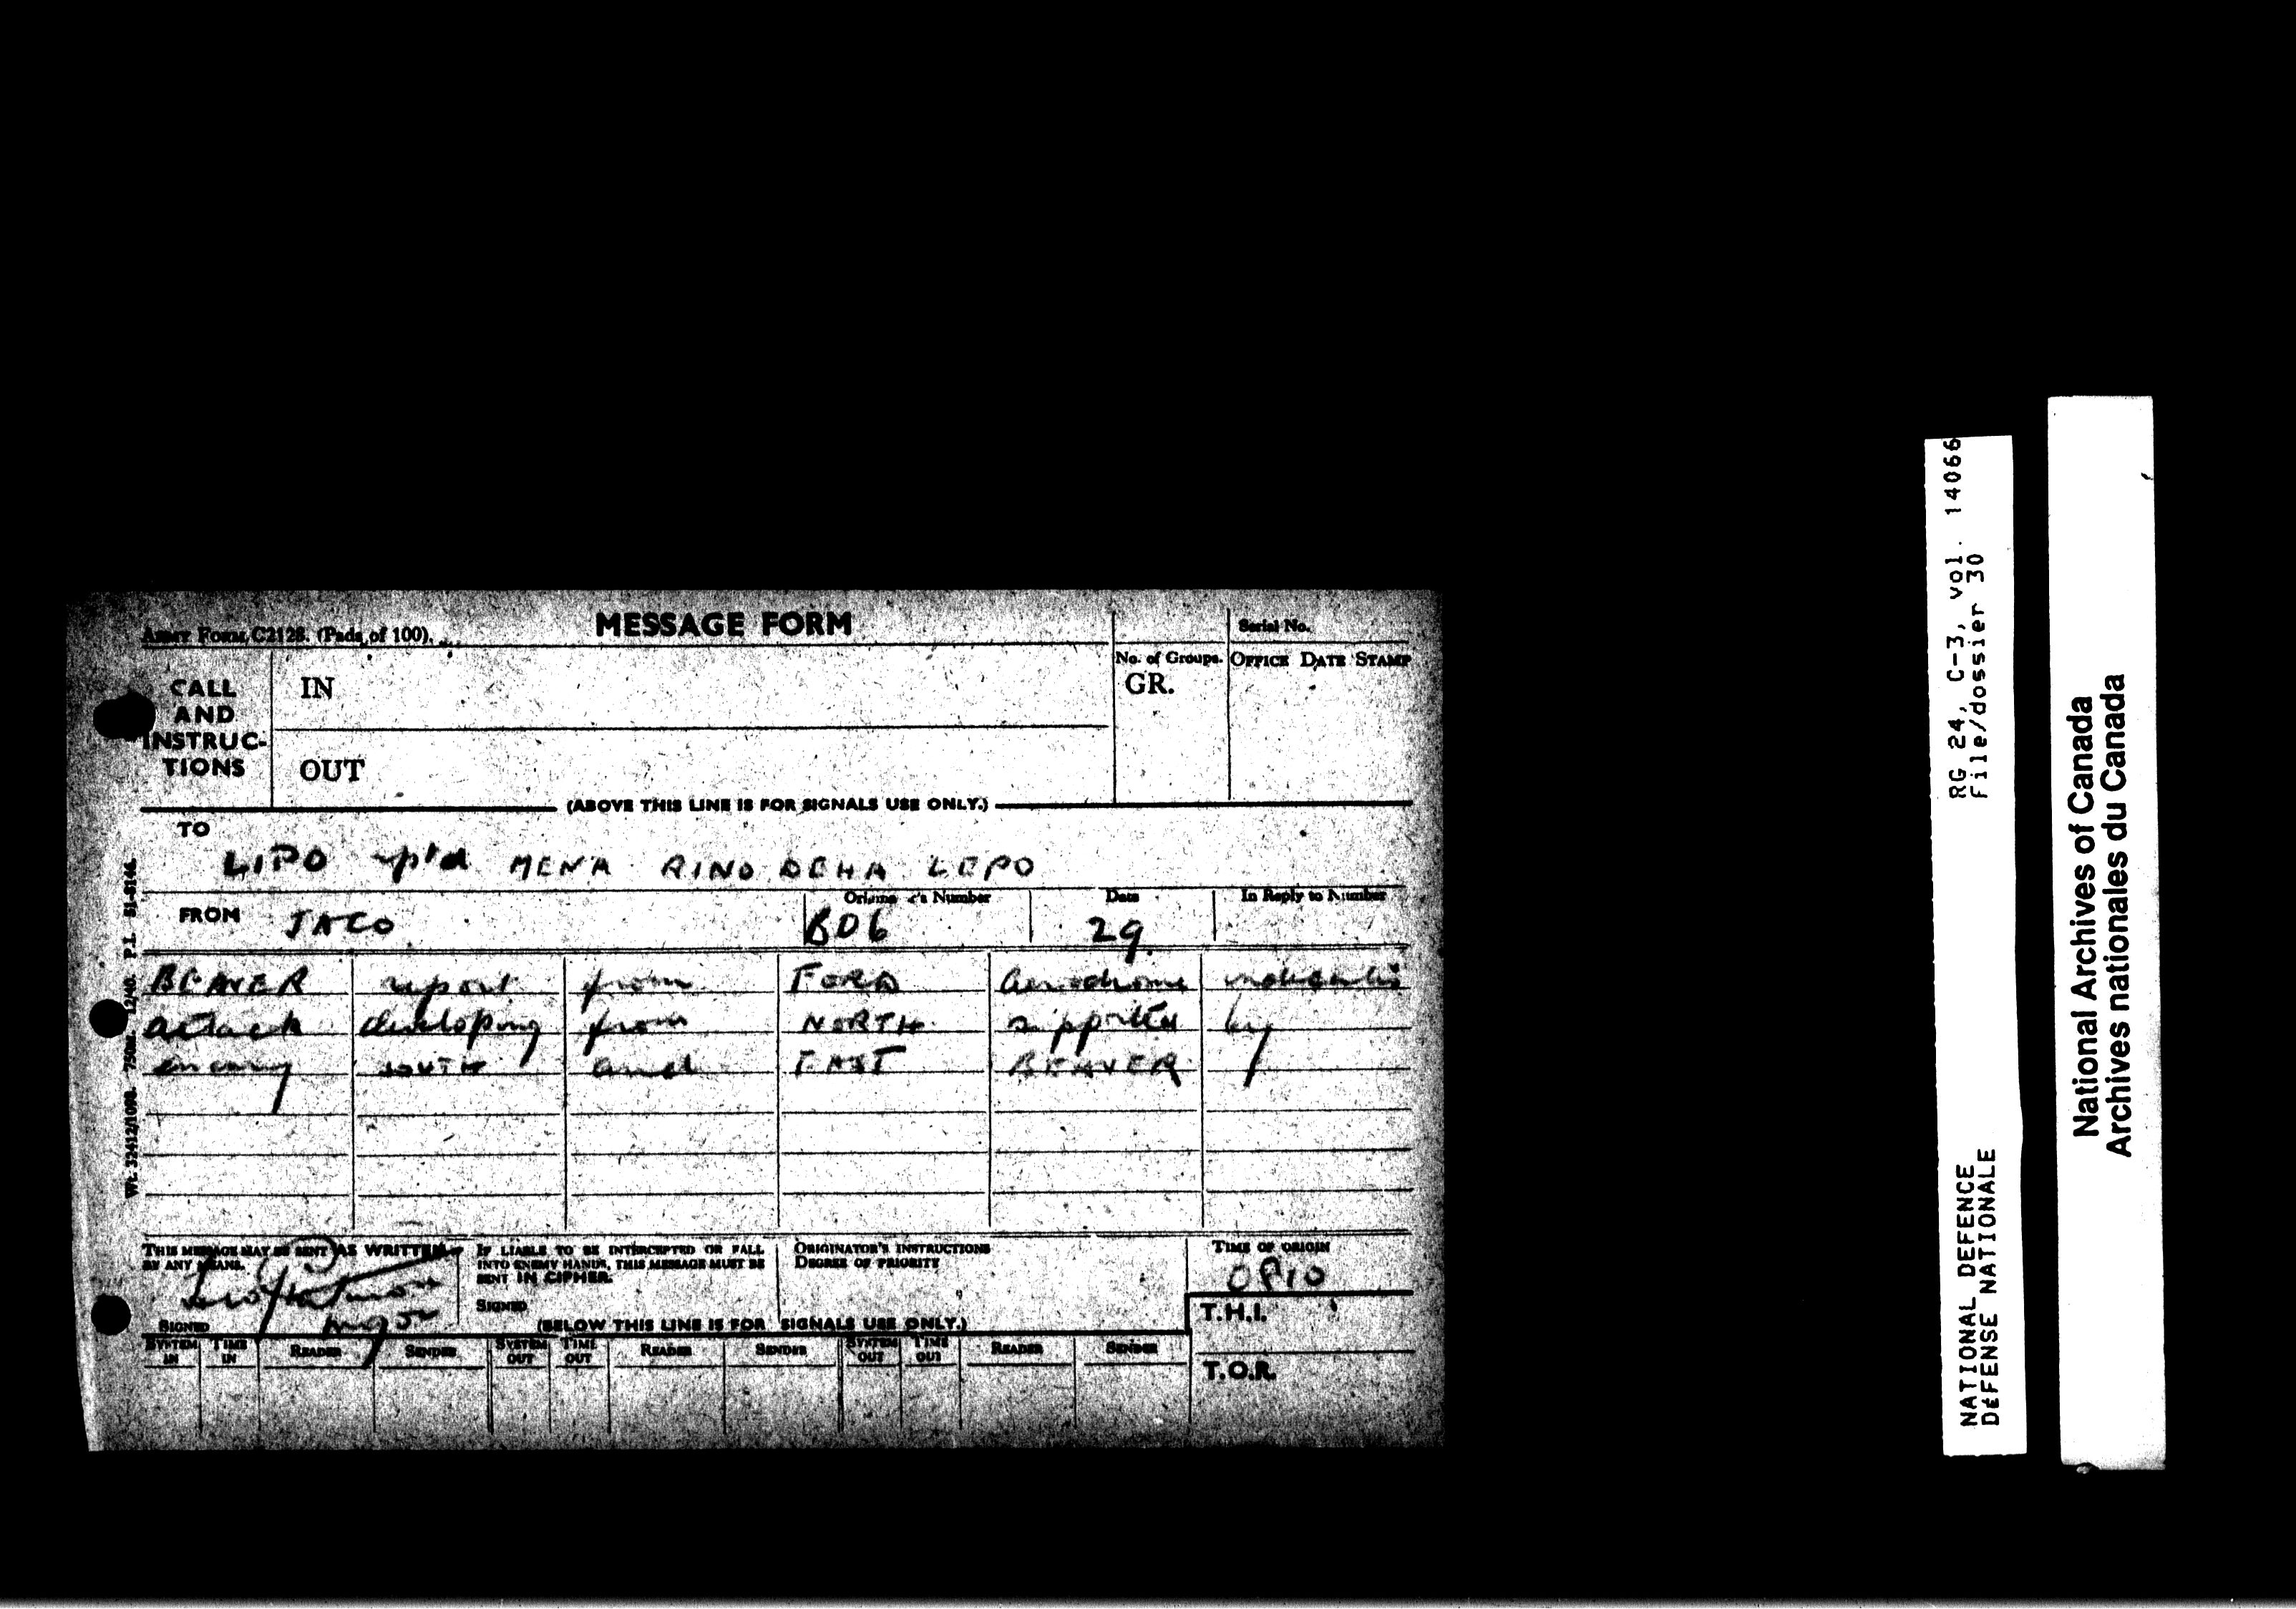 ARMY FORM C2128. (Pads of 100).
MESSAGE FORM
Serial No.
CALL AND INSTRUC-TIONS
IN
OUT
No. of Groups.
GR.
OFFICE DATE STAMP
(ABOVE THIS LINE IS FOR SIGNALS USE ONLY.)
TO
LIPO rptd MENA RINO DEHA LEPO
FROM JACO
Number
BD6
Date
29
In Reply to Number
BEAVER report from FORD aerodrome indicates
attack developing from NORTH supported by
enemy SOUTH and EAST BEAVER
THIS MESSAGE MAY BE SENT AS WRITTEN
BY ANY MEANS.
SIGNED
IF LIABLE TO BE INTERCEPTED OR FALL
INTO ENEMY HANDS, THIS MESSAGE MUST BE
SENT IN CIPHER.
SIGNED
ORIGINATOR'S INSTRUCTIONS
DEGREE OF PRIORITY
TIME OF ORIGIN
T.H.I.
T.O.R.
(BELOW THIS LINE IS FOR SIGNALS USE ONLY.)
SYSTEM IN TIME IN READER SENDER SYSTEM OUT TIME OUT READER SENDER SYSTEM OUT TIME OUT READER SENDER
Wt. 32412/1098. 750M. 12/40. P.I. 51-8144.
RG 24, C-3, vol. 14066
File/dossier 30
NATIONAL DEFENCE
DÉFENSE NATIONALE
National Archives of Canada
Archives nationales du Canada